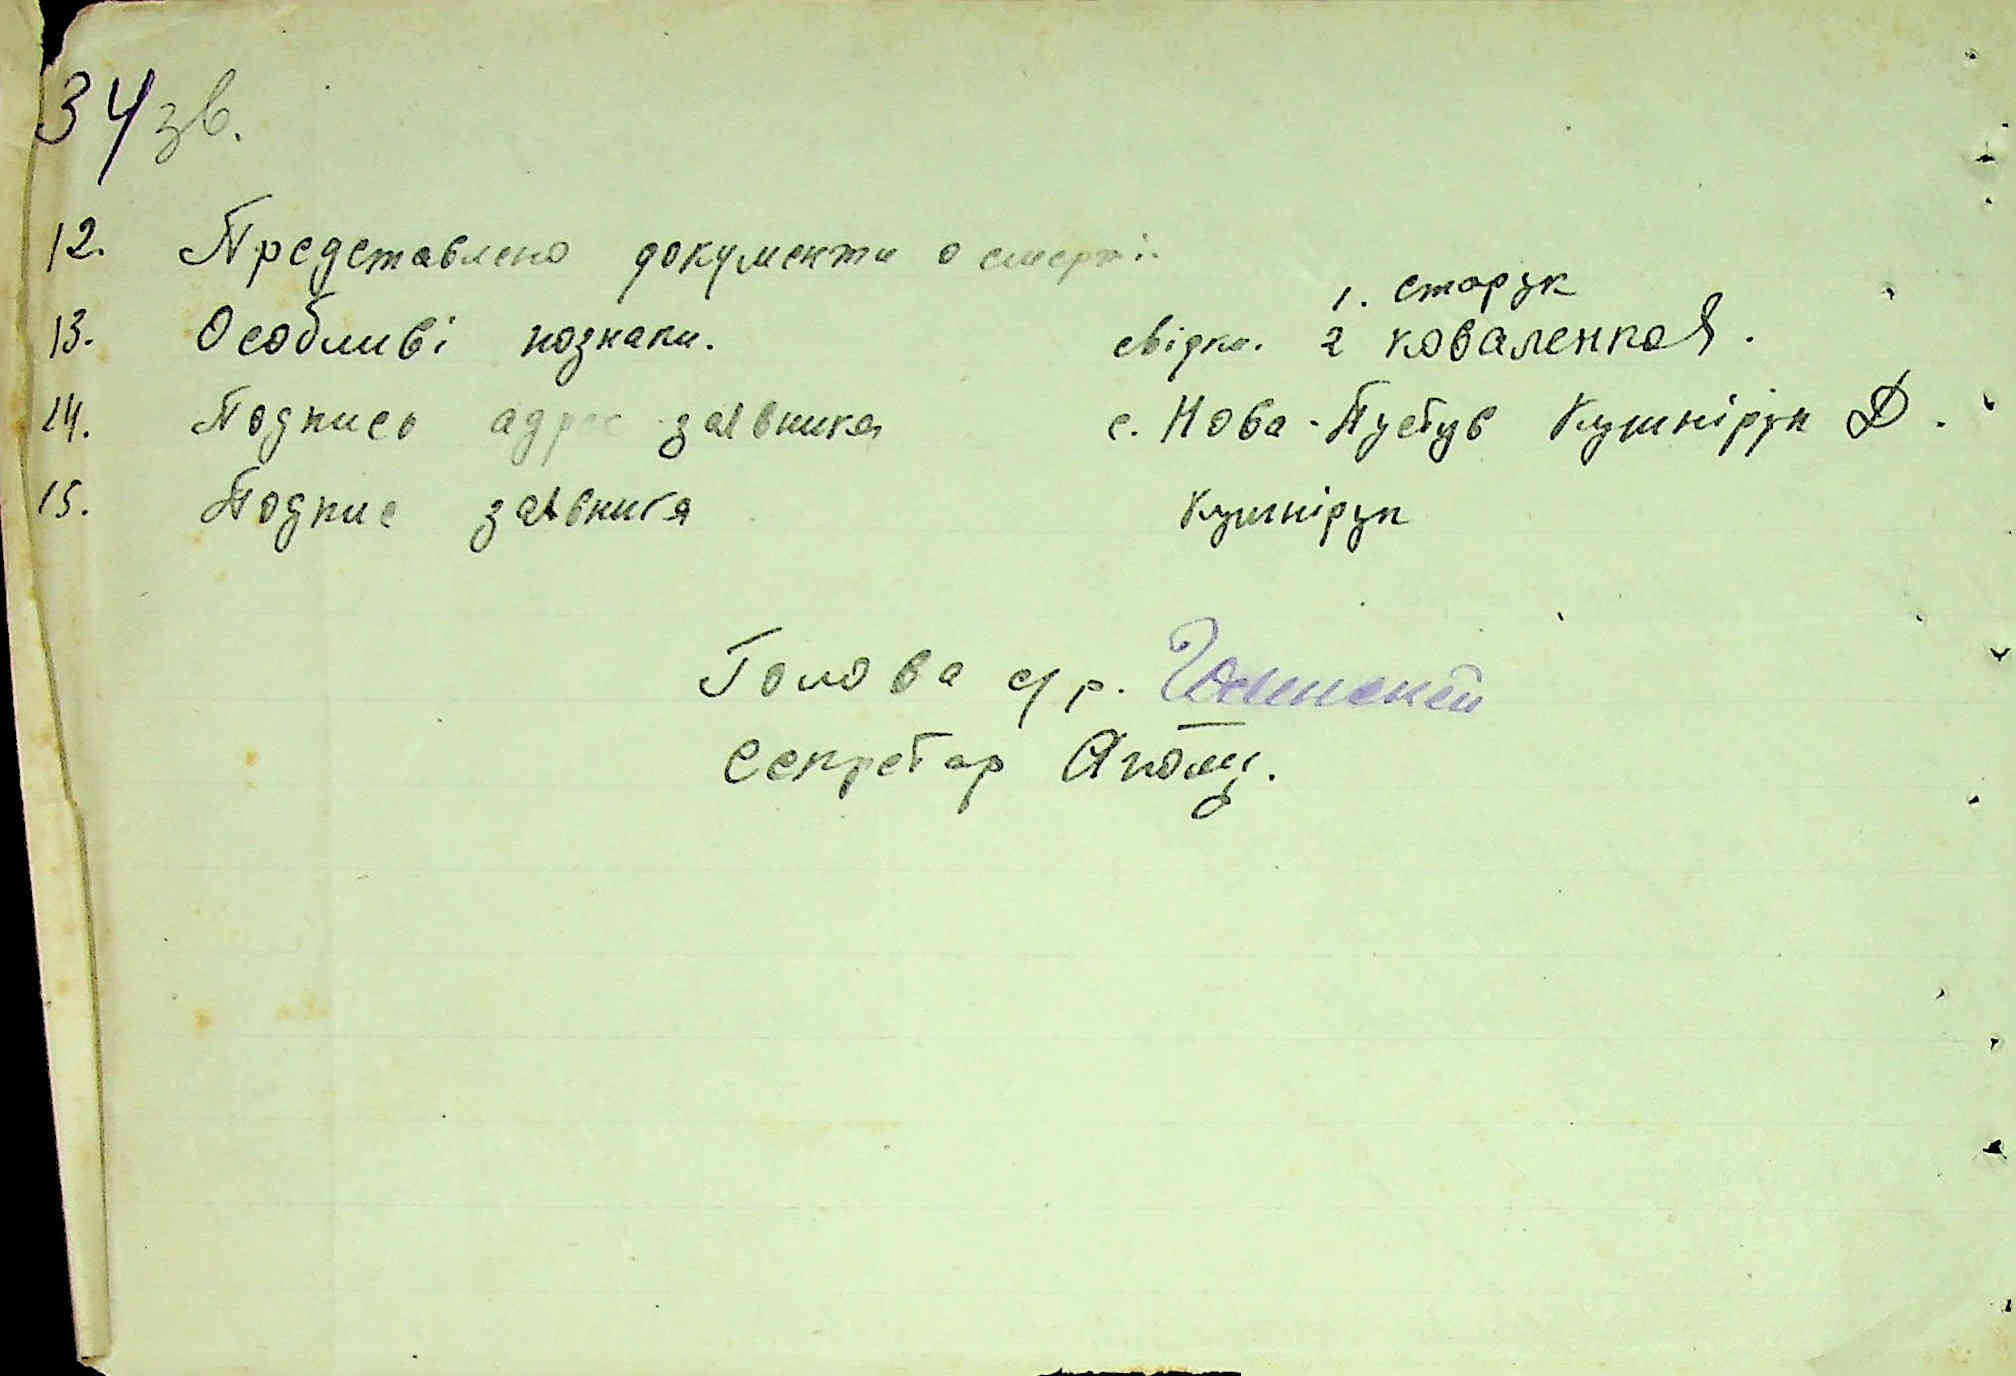 34 зв.
12. Представлено документи о смерті.
1. Сторук
13. Особливі познаки. свідки. 2 Коваленко Я.
14. Подписо адрес заявника с. Нова-Пустув Кушнірук Д.
15. Подпис заявника Кушнірук
Голова с/р.
Секретар